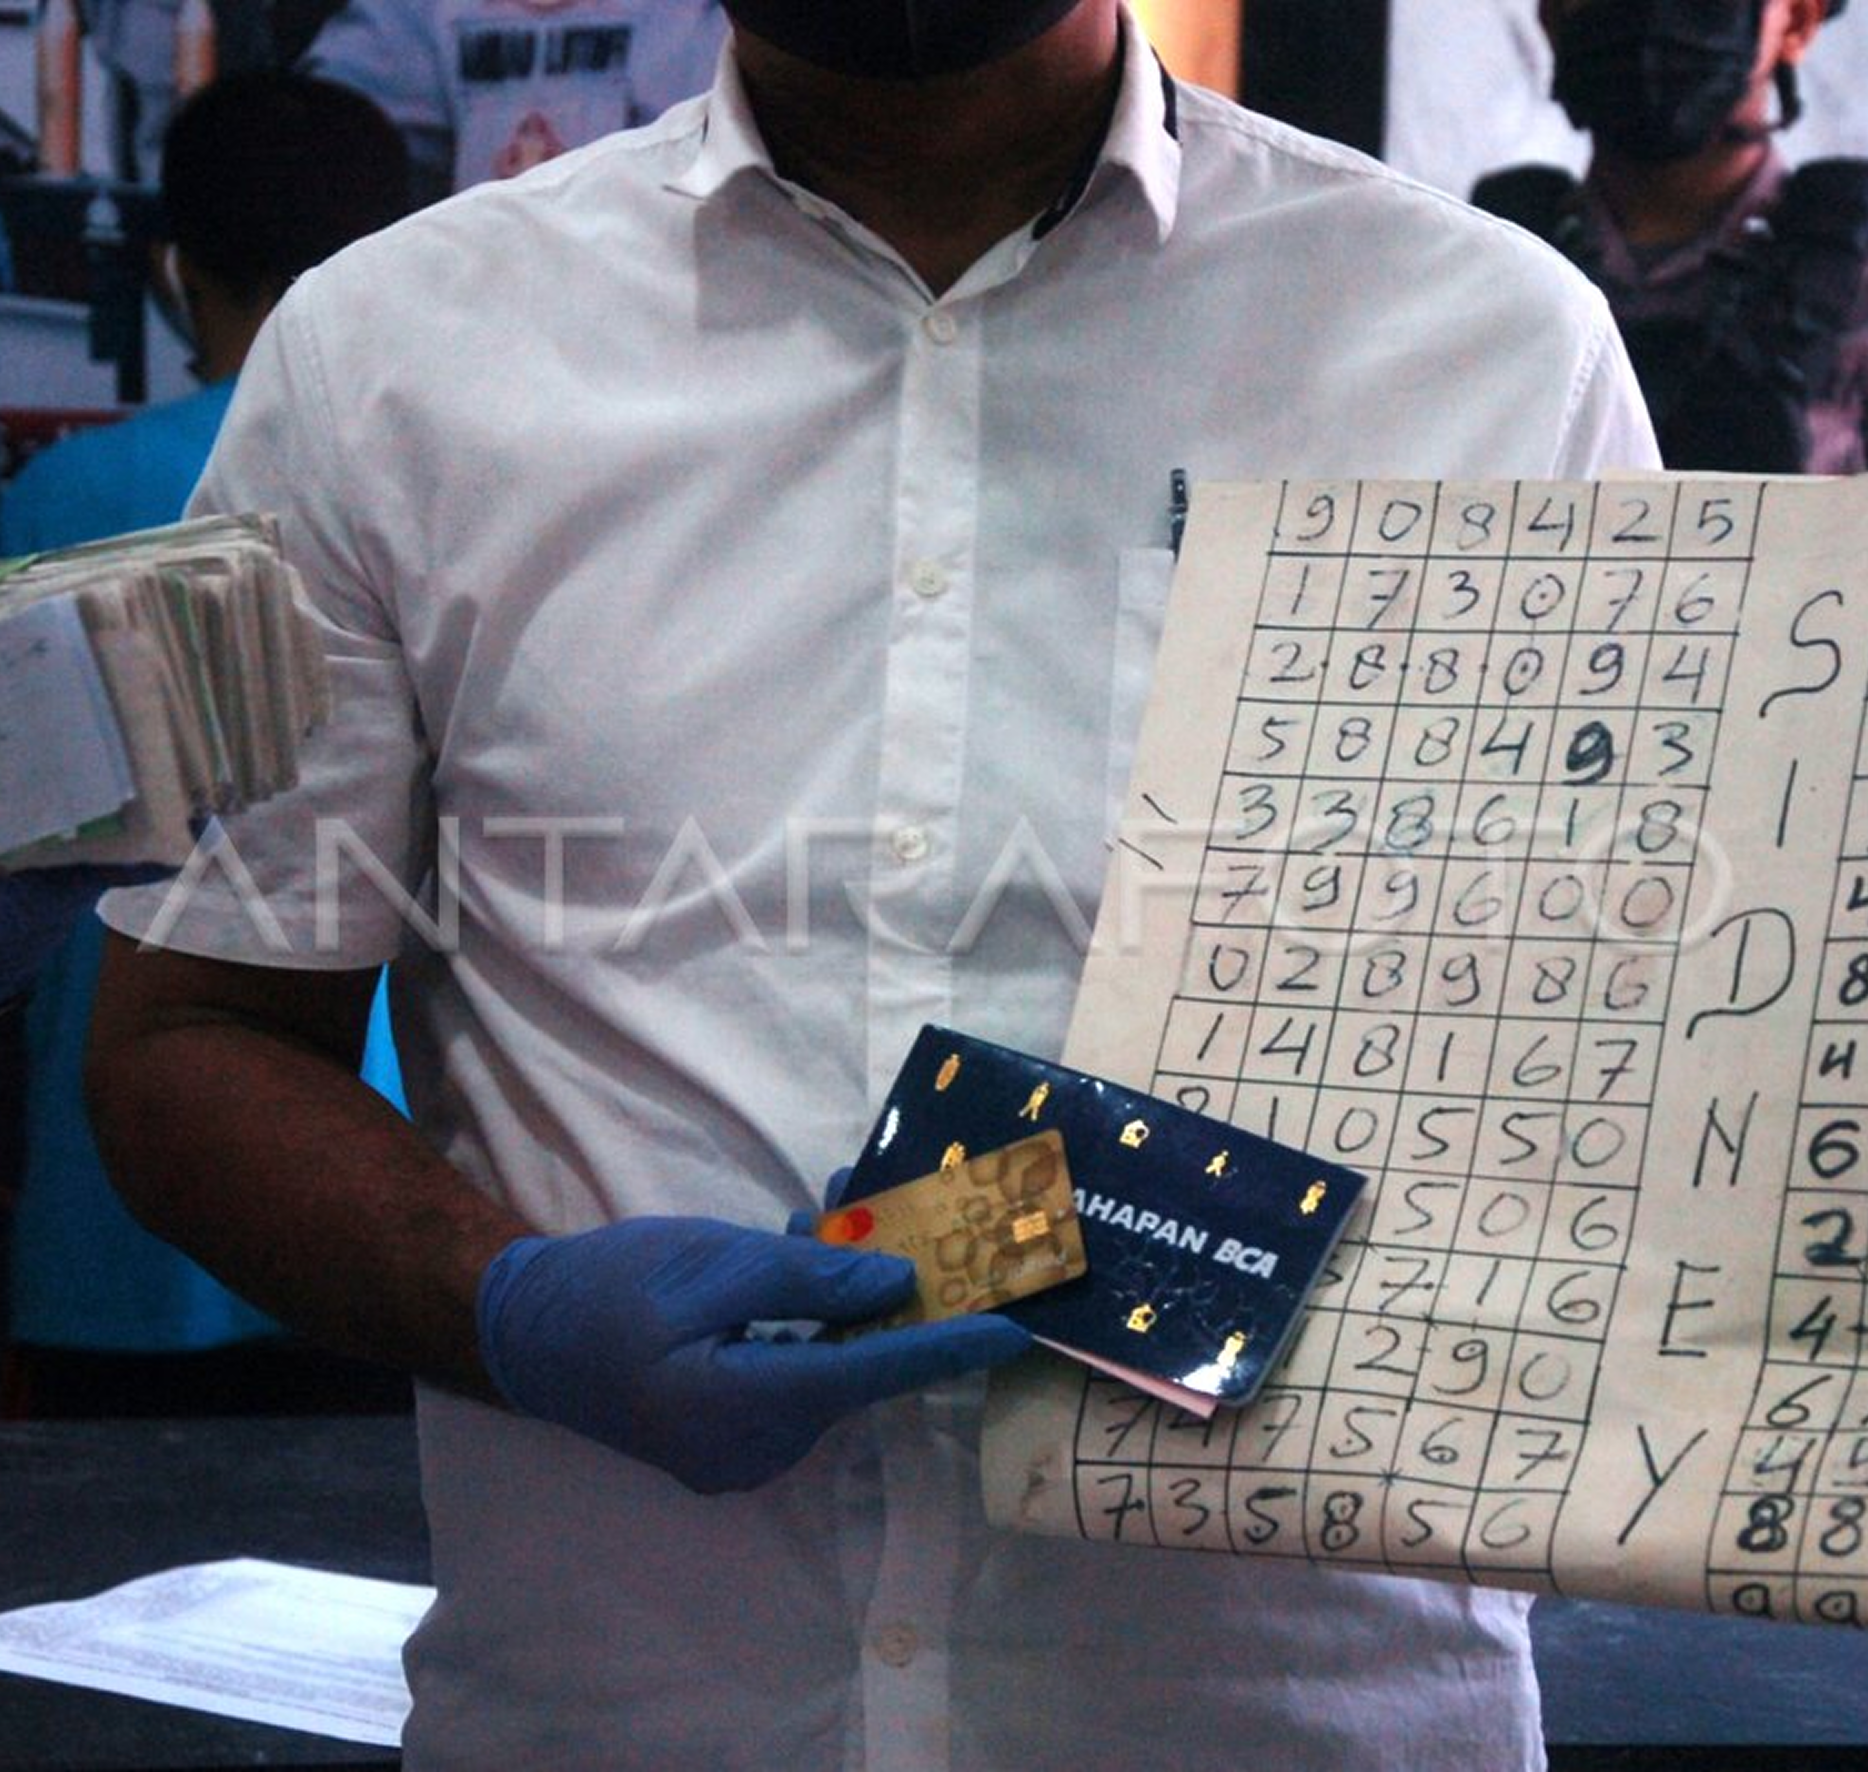 908425
173076
288094
588493
338618
799600
028986
148167
10550
506
716
290
747567
735856
SIDNEY
4
8
4
6
2
4
6
4
88
99
AHAPAN BCA
ANTARAFOTO